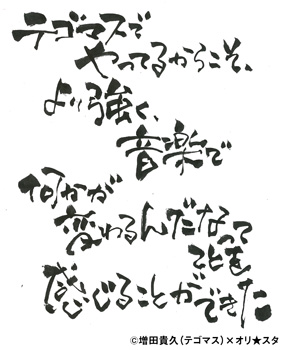 テゴマスで
やってるからこそ、
より強く、
音楽で
何かが
変わるんだなって
ことを
感じることができた
©増田貴久(テゴマス)×オリ★スタ